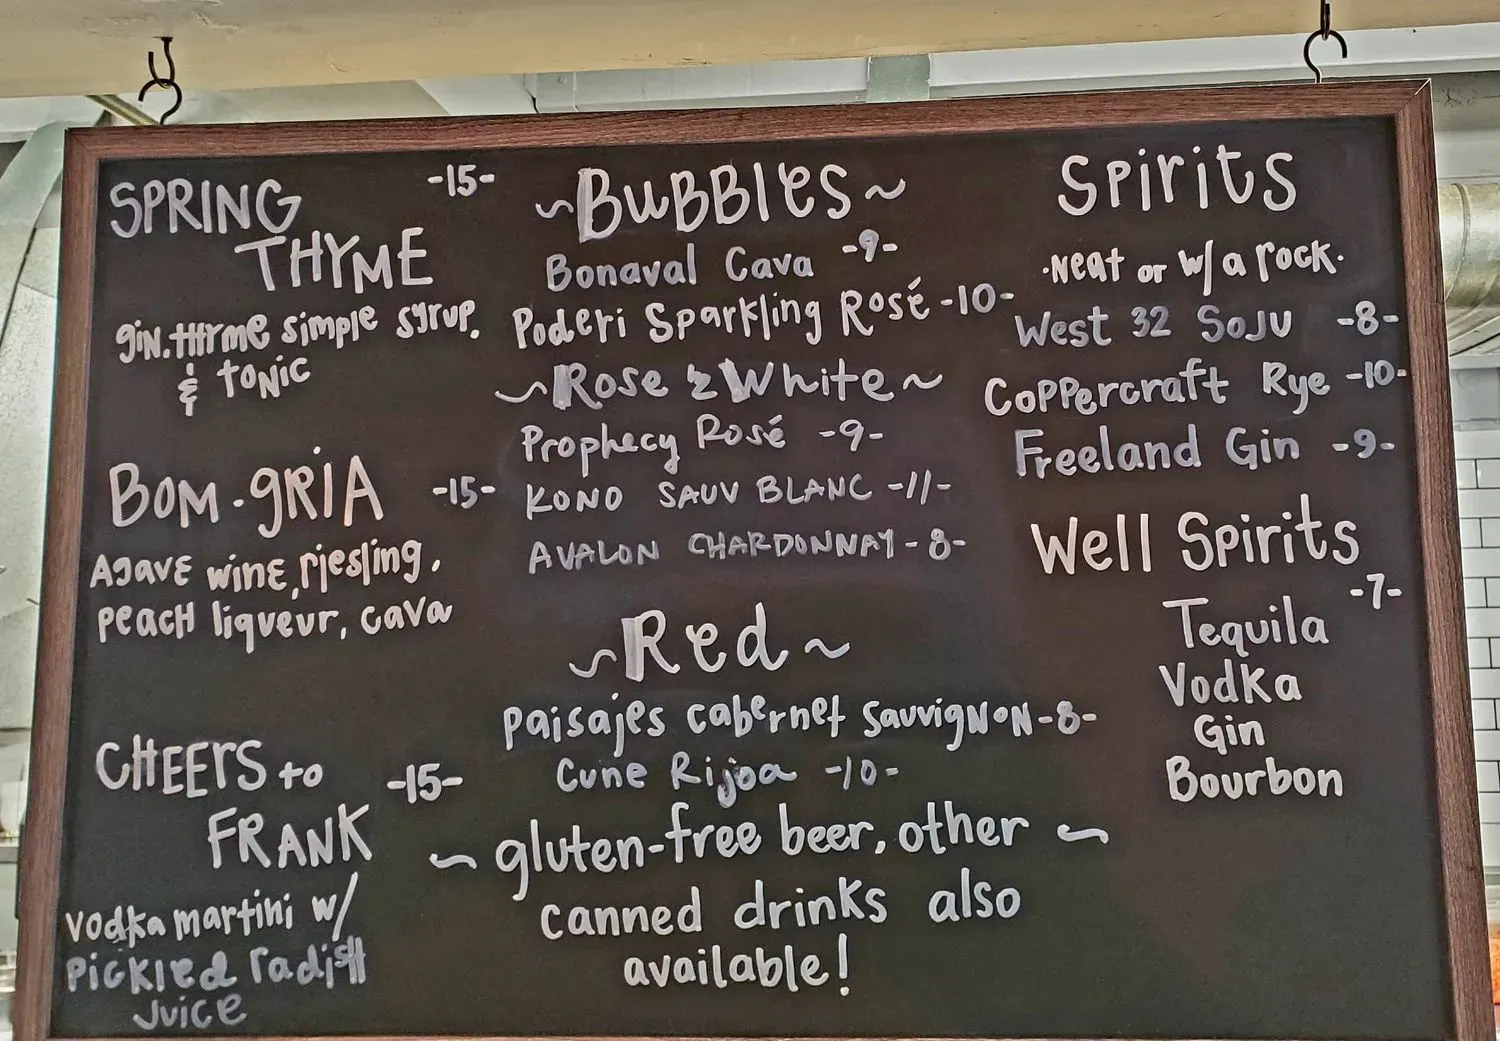 SPRING -15-
THYME
gin, thyme simple syrup,
& tonic
BOM-GRIA -15-
Agave wine, riesling,
peach liqueur, cava
CHEERS to
FRANK -15-
vodka martini w/
pickled radish
juice
~Bubbles~
Bonaval Cava -9-
Poderi Sparkling Rosé -10-
~Rose & White~
Prophecy Rosé -9-
KONO SAUV BLANC -11-
AVALON CHARDONNAY -8-
~Red~
Paisajes Cabernet Sauvignon -8-
Cune Rijoa -10-
~ gluten-free beer, other ~
canned drinks also
available!
Spirits
·neat or w/ a rock·
West 32 Soju -8-
Coppercraft Rye -10-
Freeland Gin -9-
Well Spirits
-7-
Tequila
Vodka
Gin
Bourbon